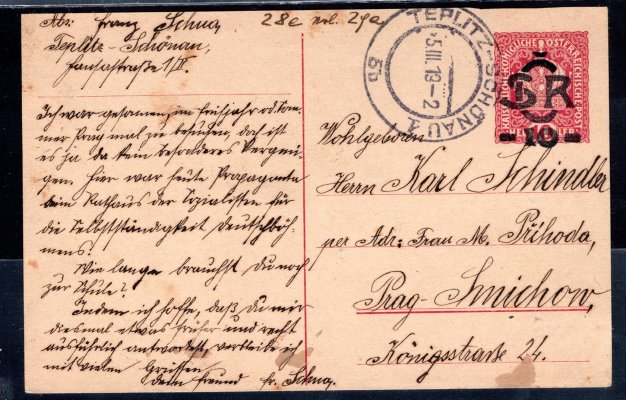 Abs: Franz Schug,
Teplitz-Schönau,
1/II.
28c 29a
TEPLITZ-SCHÖNAU 1
5.III.19-2
5g
KAISERLICHE KÖNIGLICHE ÖSTERREICHISCHE POST
HELLER
ČSR
-10-
Ich war gesonnen im Frühjahr od. Som-
mer Prag mal zu besuchen, doch ist
es ja kein besonderes Vergnü-
gen. Hier war heute Propaganda
beim Rathaus der Sozialisten für
die Selbstständigkeit Deutschböh-
mens!
Wie lange brauchst du noch
zur Schule?
Indem ich hoffe, daß du mir
diesmal etwas früher und recht
ausführlich antwortest, verbleibe ich
mit vielen Grüssen
dein Freund Fr. Schug.
Wohlgeboren
Herrn Karl Schindler
per Adr: Frau M. Příhoda,
Prag-Smichow,
Königsstraße 24.